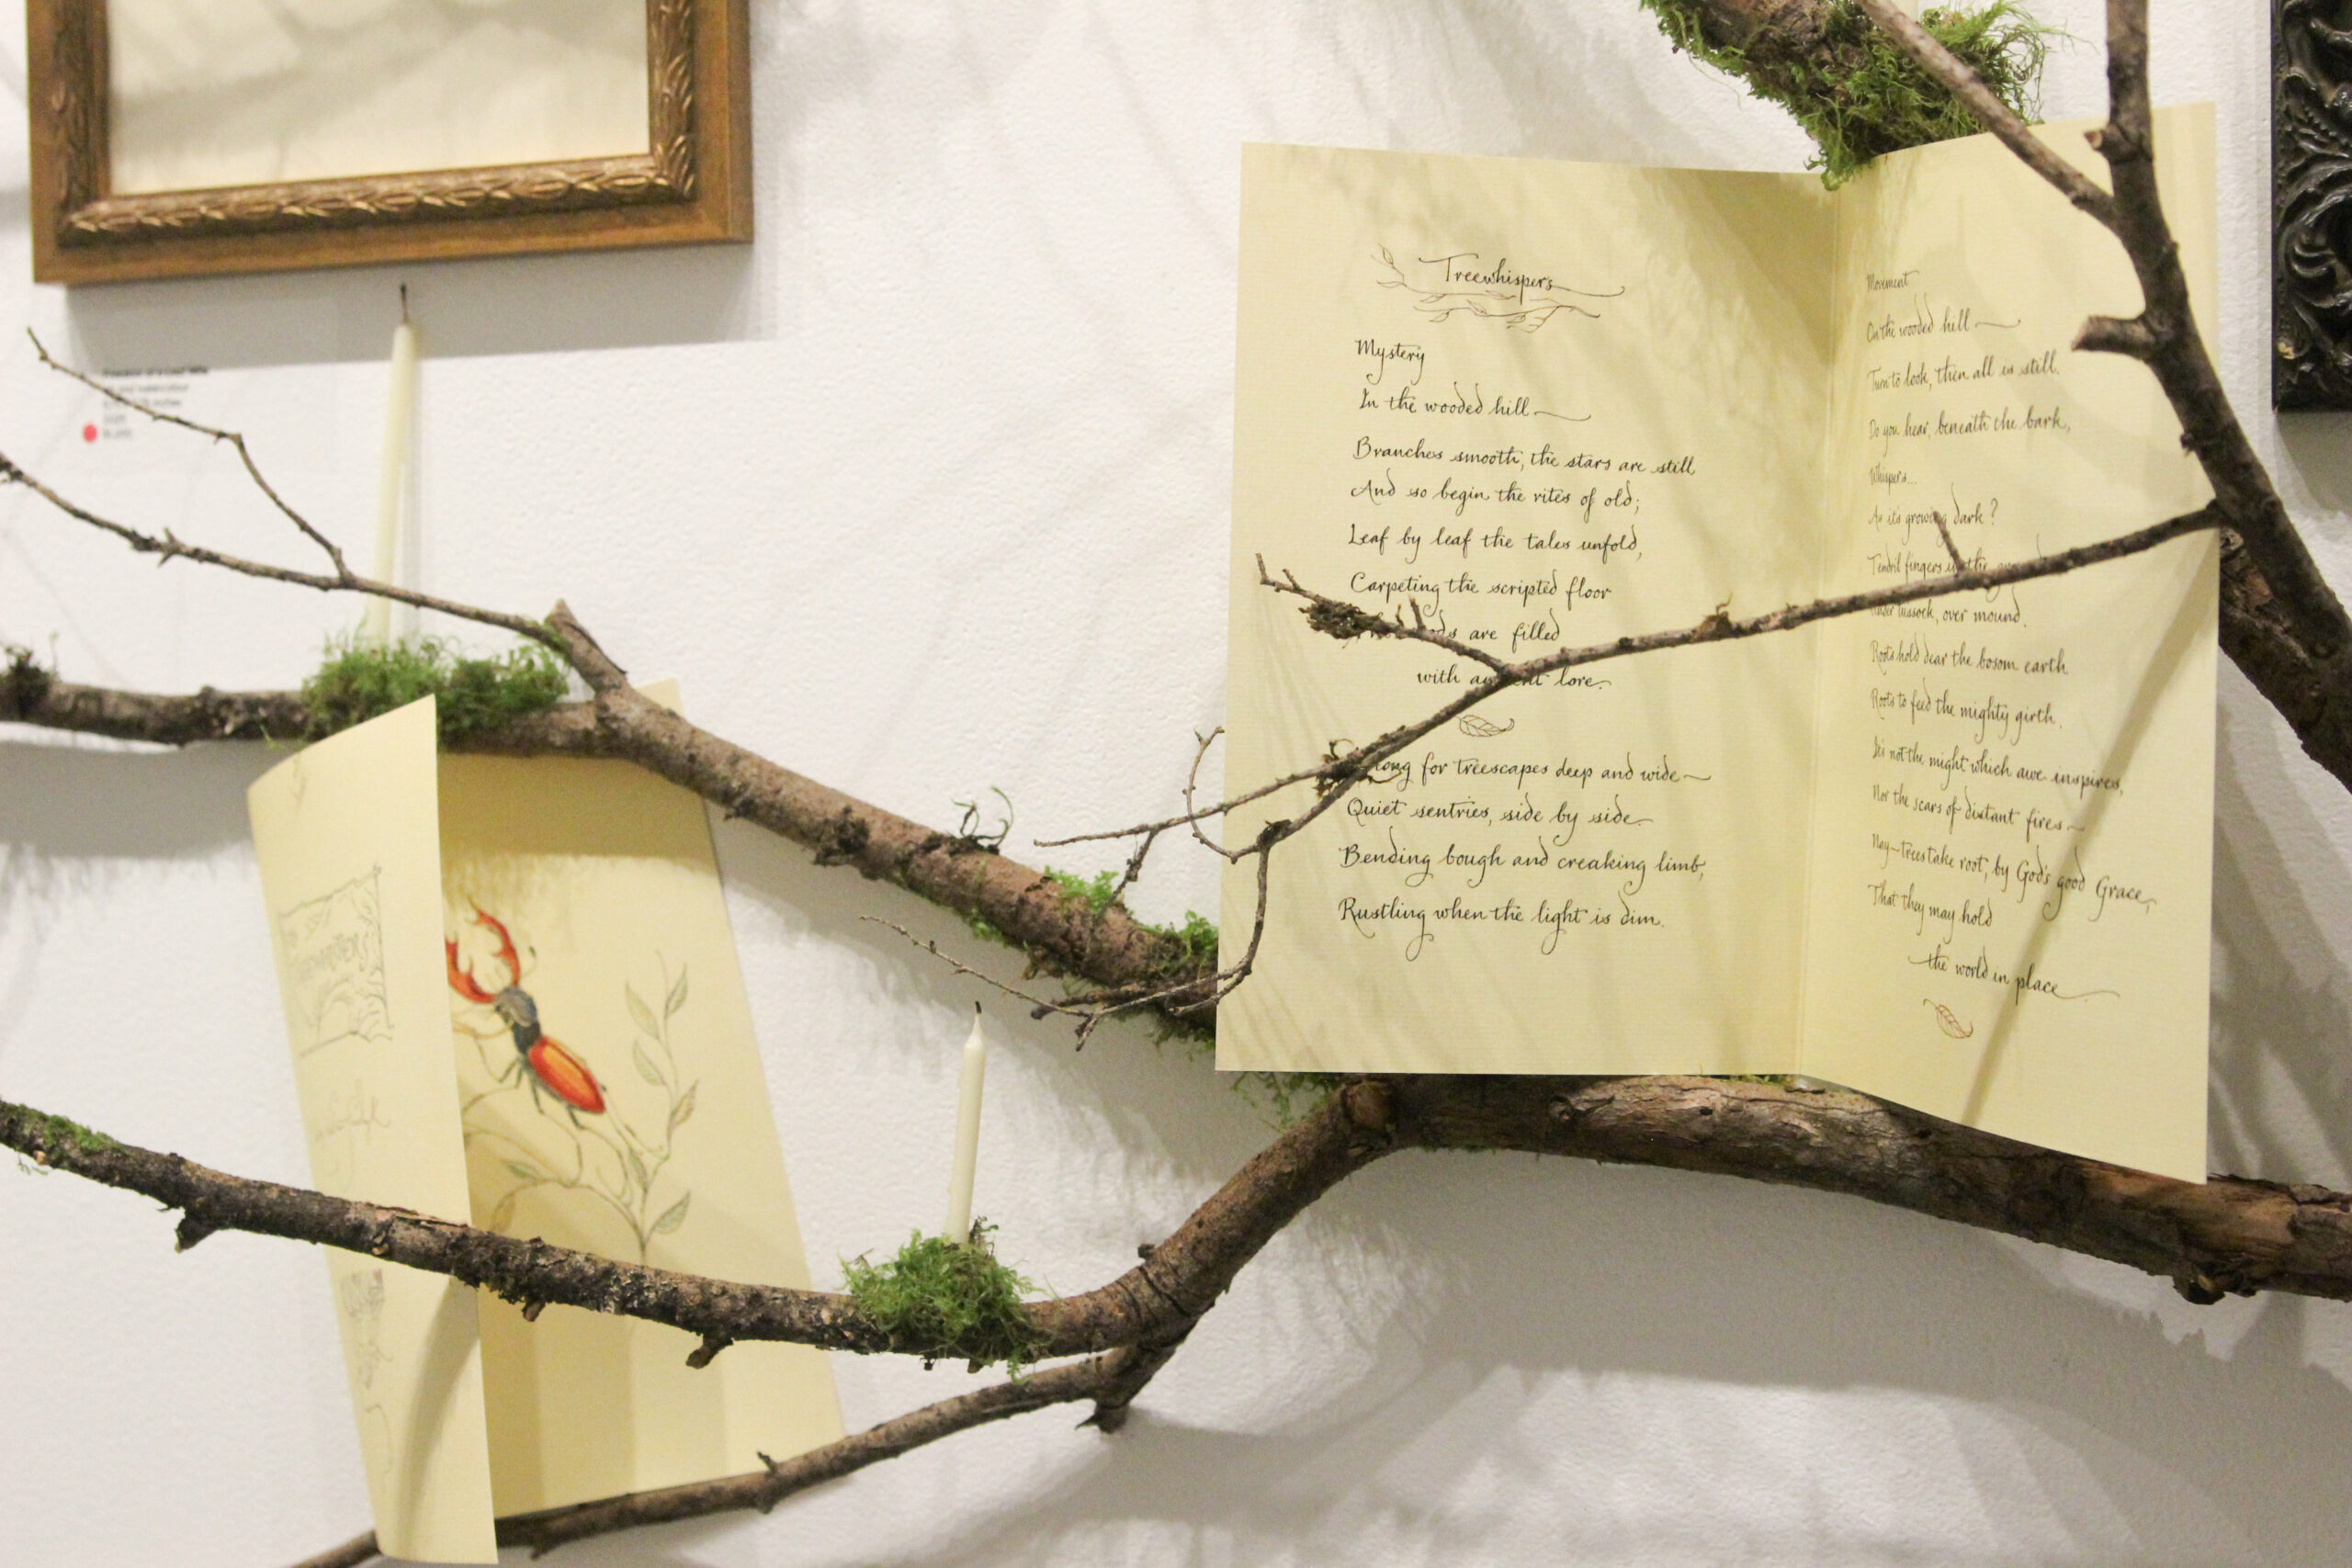 Treewhispers
Mystery
In the wooded hill—
Branches smooth, the stars are still
And so begin the rites of old;
Leaf by leaf the tales unfold,
Carpeting the scripted floor
are filled
with lore.
for treescapes deep and wide—
Quiet sentries, side by side.
Bending bough and creaking limb,
Rustling when the light is dim.
Movement
On the wooded hill—
Turn to look, then all is still.
Do you hear, beneath the bark,
Whispers...
As it's growing dark?
Tendril fingers
tussock, over mound.
Roots hold dear the bosom earth
Roots to feed the mighty girth.
It's not the might which awe inspires,
Nor the scars of distant fires—
Nay—trees take root, by God's good Grace,
That they may hold
the world in place